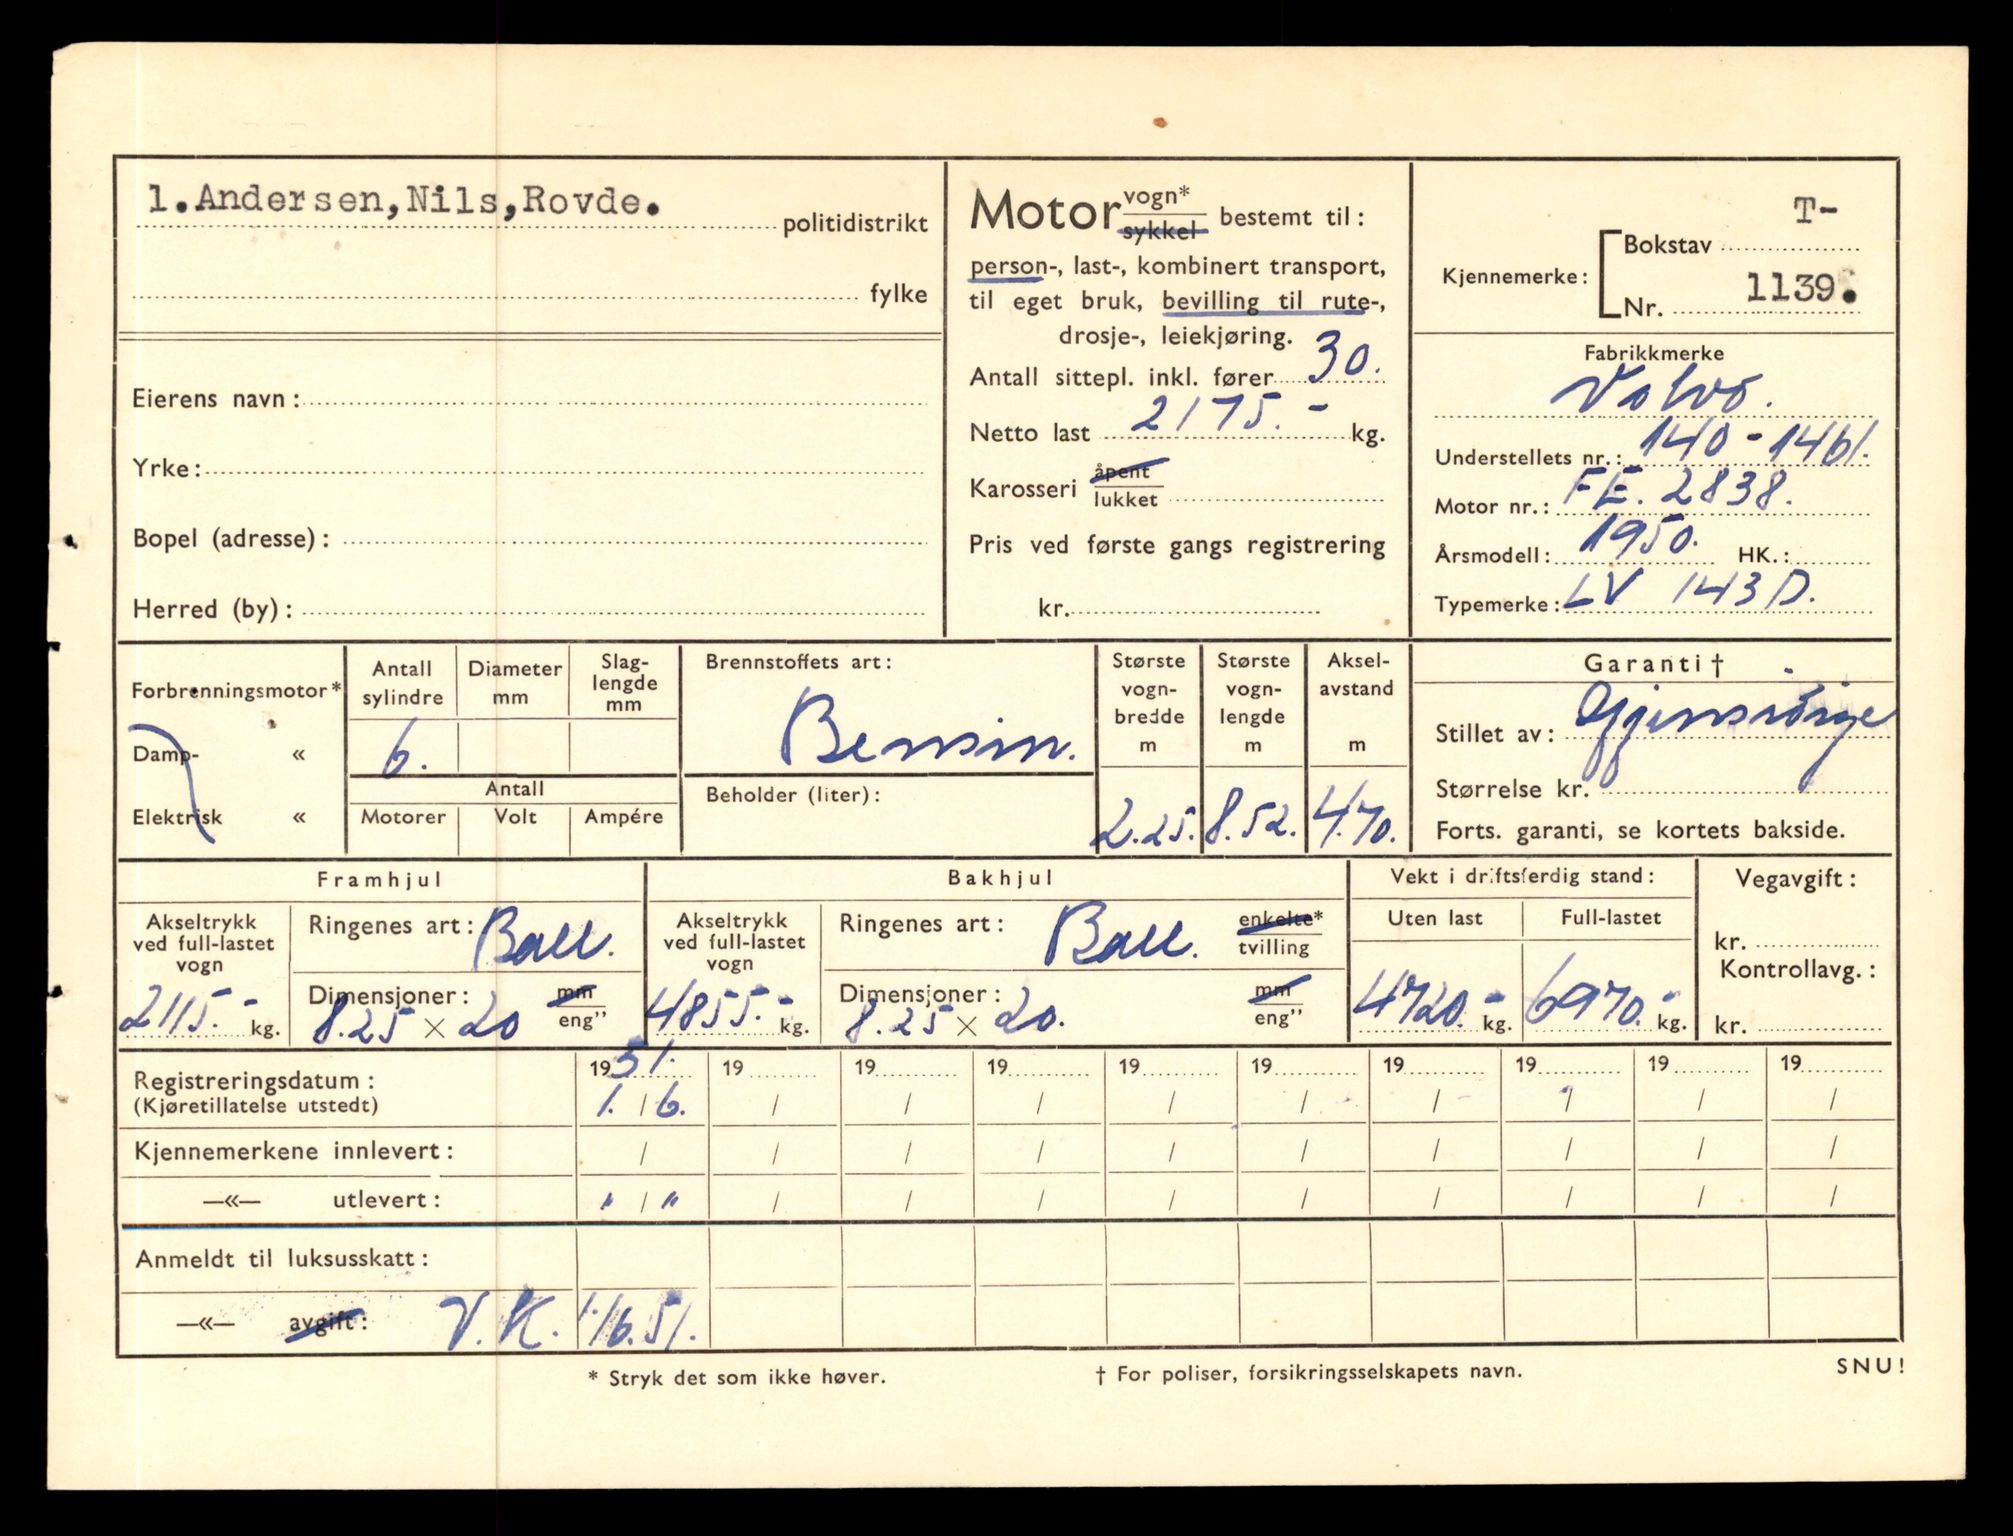 1.Andersen,Nils,Rovde.
politidistrikt
fylke
Eierens navn:
Yrke:
Bopel (adresse):
Herred (by):
Motor vogn* sykkel bestemt til:
person-, last-, kombinert transport,
til eget bruk, bevilling til rute-,
drosje-, leiekjøring.
Antall sittepl. inkl. fører 30.
Netto last 2175.- kg.
Karosseri åpent lukket
Pris ved første gangs registrering
kr.
T-
Kjennemerke: Bokstav
Nr. 1139.
Fabrikkmerke
Volvo.
Understellets nr.: 140-1461.
Motor nr.: FE. 2838.
Årsmodell: 1950. HK.:
Typemerke: LV 143 D.
Forbrenningsmotor*
Damp- «
Elektrisk «
Antall sylindre
Diameter mm
Slag-lengde mm
6.
Antall
Motorer Volt Ampére
Brennstoffets art:
Bensin.
Beholder (liter):
Største vogn-bredde m
2.25.
Største vogn-lengde m
8.52.
Aksel-avstand m
4.70.
Garanti †
Stillet av: Gjensidige
Størrelse kr.
Forts. garanti, se kortets bakside.
Framhjul
Akseltrykk ved full-lastet vogn
2115.- kg.
Ringenes art: Ball.
Dimensjoner: mm eng"
8.25 × 20
Bakhjul
Akseltrykk ved full-lastet vogn
4855.- kg.
Ringenes art: Ball. enkelte* tvilling
Dimensjoner: mm eng"
8.25 × 20.
Vekt i driftsferdig stand:
Uten last Full-lastet
4720.- kg. 6970.- kg.
Vegavgift:
kr.
Kontrollavg.:
kr.
Registreringsdatum:
(Kjøretillatelse utstedt)
1951. 19 19 19 19 19 19 19 19 19
1. / 6. / / / / / / / / /
Kjennemerkene innlevert: / / / / / / / / / /
—«— utlevert: " / " / / / / / / / / /
Anmeldt til luksusskatt:
—«— avgift: V.K. 1./6.51.
* Stryk det som ikke høver.
† For poliser, forsikringsselskapets navn.
SNU!